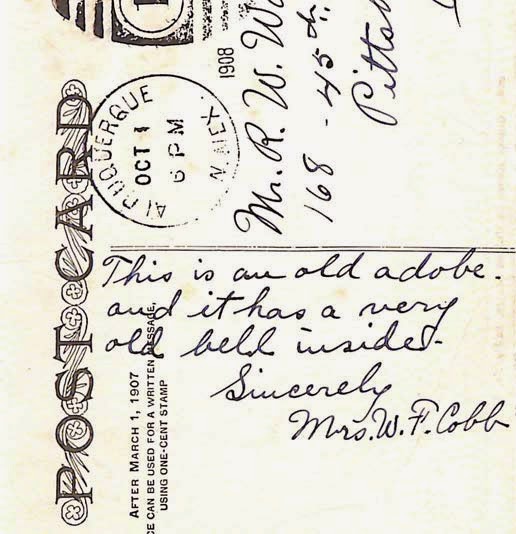 POST CARD
ALBUQUERQUE
N. MEX.
OCT 1
6 PM
1908
Mr. R. W. W
168 - 45th
Pittsb
This is an old adobe.
and it has a very
old bell inside.
Sincerely
Mrs. W. F. Cobb
AFTER MARCH 1, 1907
CE CAN BE USED FOR A WRITTEN MESSAGE,
USING ONE-CENT STAMP